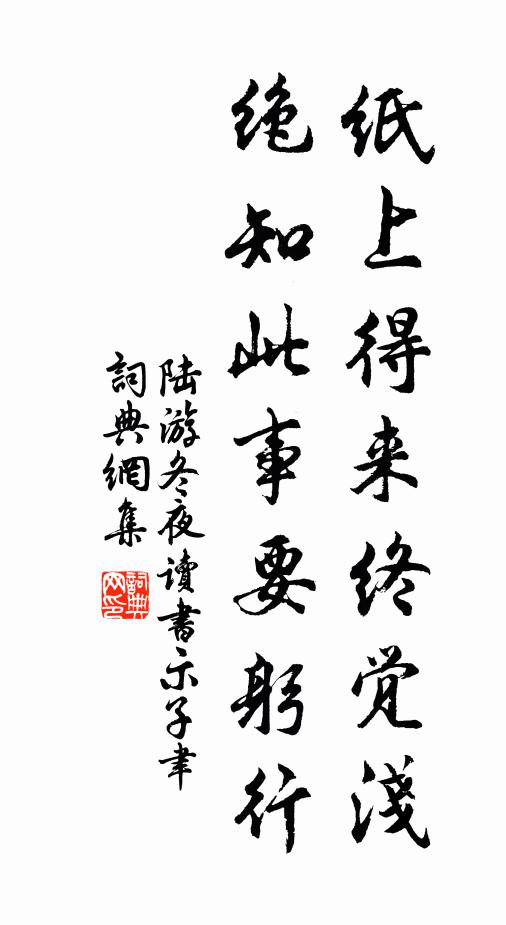 纸上得来终觉淺
绝知此事要躬行
陆游冬夜读書示子聿
詞典網集
詞典网印